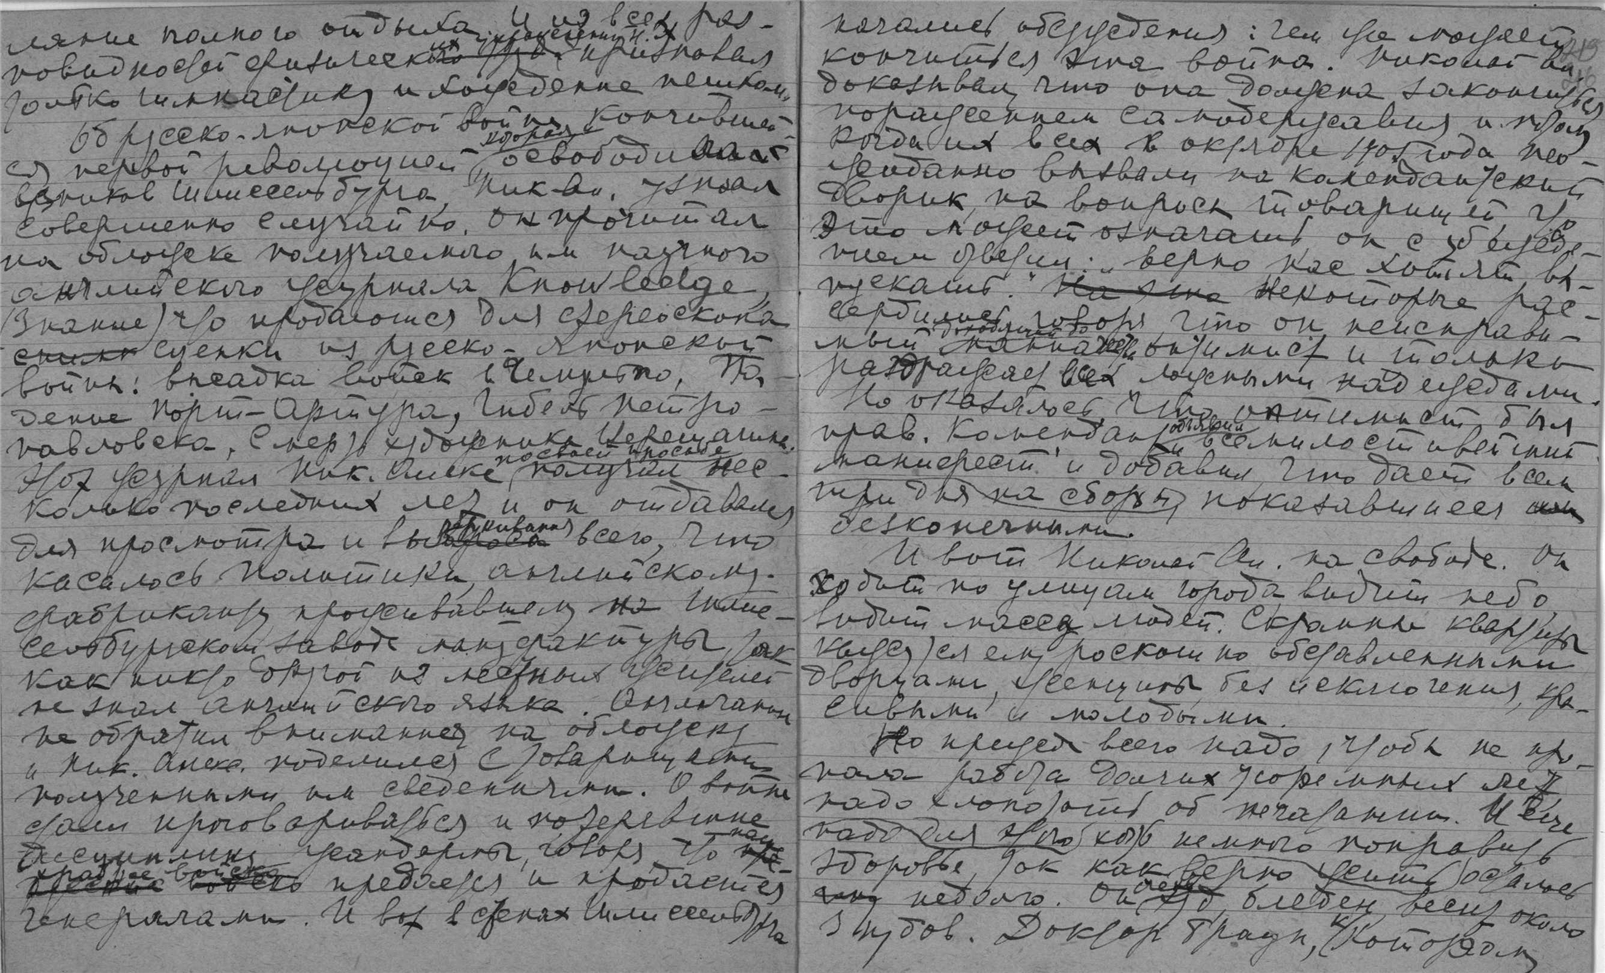 ляние полного отдыха. И из всех раз-
новидностей физических упражнений Н. А. признавал
только гимнастику и хождение пешком.
Об русско-японской войне, кончившей-
ся первой революцией которая освободила
узников Шлиссельбурга, Ник. Ал. узнал
совершенно случайно. Он прочитал
на обложке получаемого им научного
английского журнала Knowledge,
(Знание) что продаются для стереоскопа
сценки из русско-японской
войны: высадка войск в Чемульпо, Па-
дение Порт-Артура, гибель Петро-
павловска, смерть художника Верещагина.
Этот журнал Ник. Алекс. по своей просьбе получал нес-
колько последних лет и он отдавался
для просмотра и вырывания всего, что
касалось политики, английскому
фабриканту проживавшему на Шлис-
сельбургском заводе мануфактуры, так
как никто другой из местных жителей
не знал английского языка. Англичанин
не обратил внимания на обложку
и Ник. Алекс. поделился с товарищами
полученными им сведениями. О войне
стали проговариваться и потерявшие
дисциплину жандармы, говоря что наше
храброе войско предается и продается
генералами. И вот в стенах Шлиссельбурга
начались обсуждения: чем же может
кончиться эта война. Николай Ал.
доказывал, что она должна закончиться
поражением самодержавия и потому
когда их всех в октябре 1905 года нео-
жиданно вызвали на комендантский
дворик, на вопросы товарищей что
это может означать, он с убежде-
нием ответил: "верно нас хотят вы-
пускать." На это Некоторые рас-
сердились говоря, что он неисправи-
мый оптимист и только
раздражает всех ложными надеждами.
Но оказалось, что оптимист был
прав. Комендант объявил "всемилостивейший
манифест" и добавил, что дает всем
три дня на сборы, показавшиеся им
безконечными.
И вот Николай Ал. на свободе. Он
ходит по улицам города, видит небо,
видит массу людей. Скромные квартиры
кажутся ему роскошно обставленными
дворцами, женщины, без исключения, кра-
сивыми и молодыми.
Но прежде всего надо, чтобы не про-
пала работа долгих тюремных лет
надо хлопотать об печатании. И еще
надо для этого хоть немного поправить
здоровье, так как верно жить осталось
недолго. Он был бледен, весил около
3 пудов. Доктор Браун, к которому